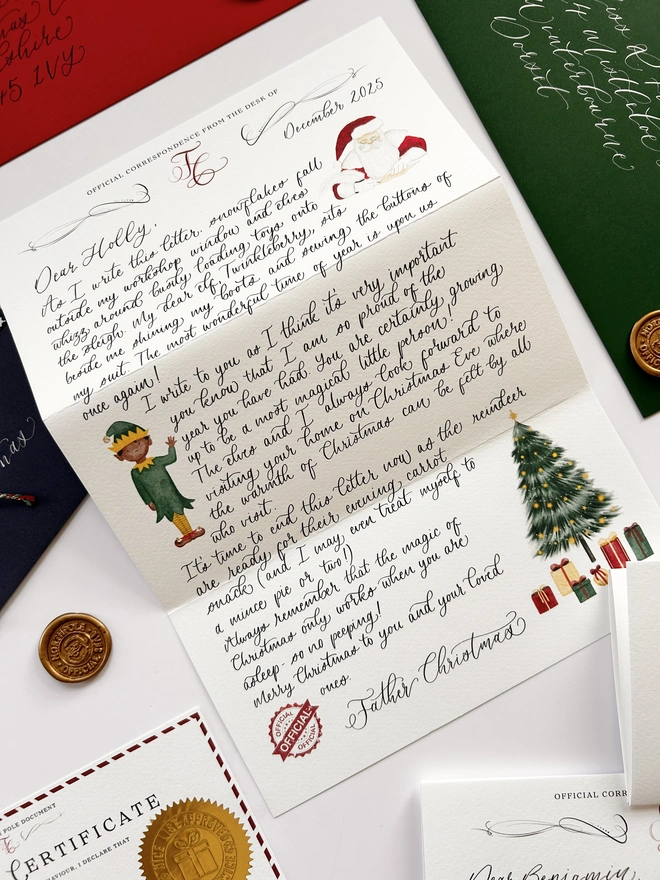 mas
shire
45 1VY
Miss
24 Mistletoe
Winterbourne
Dorset
OFFICIAL CORRESPONDENCE FROM THE DESK OF
FC
December 2025
Dear Holly,
As I write this letter, snowflakes fall
outside my workshop window and elves
whizz around busily loading toys onto
the sleigh. My dear elf, Twinkleberry, sits
beside me shining my boots and sewing the buttons of
my suit. The most wonderful time of year is upon us
once again!
I write to you as I think it's very important
you know that I am so proud of the
year you have had. You are certainly growing
up to be a most magical little person!
The elves and I always look forward to
visiting your home on Christmas Eve where
the warmth of Christmas can be felt by all
who visit.
It's time to end this letter now as the reindeer
are ready for their evening carrot
snack (and I may even treat myself to
a mince pie or two!)
Always remember that the magic of
Christmas only works when you are
asleep - so no peeping!
Merry Christmas to you and your loved
ones.
Father Christmas
OFFICIAL
OFFICIAL
OFFICIAL
mas
NORTH POLE
OFFICIAL
POLE DOCUMENT
CERTIFICATE
HAVIOUR, I DECLARE THAT
NICE LIST APPROVED
OFFICIAL CORR
Dear Benjamin,